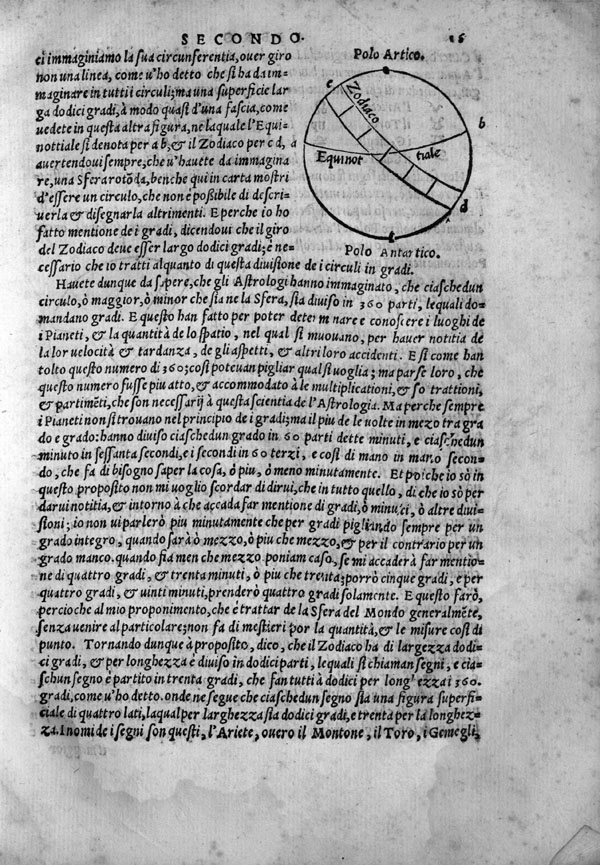 SECONDO. 16
ci immaginiamo la sua circunferentia, ouer giro
non una linea, come u'ho detto che si ha da im=
maginare in tutti i circuli; ma una superficie lar
ga dodici gradi, à modo quasi d'una fascia, come
uedete in questa altra figura, ne laquale l'Equi=
nottiale si denota per a b, & il Zodiaco per c d,
auertendoui sempre, che u'hauete da immagina
re, una Sfera rotōda, benche qui in carta mostri
d'essere un circulo, che non è poßibile di descri=
uerla & disegnarla altrimenti. E perche io ho
fatto mentione de i gradi, dicendoui che il giro
del Zodiaco deue esser largo dodici gradi; è ne=
cessario che io tratti alquanto di questa diuisione de i circuli in gradi.
Polo Artico.
c
Zodiaco
b
a
Equinot tiale
d
Polo Antartico.
Hauete dunque da sapere, che gli Astrologi hanno immaginato, che ciaschedun
circulo, ò maggior, ò minor che sia ne la Sfera, sia diuiso in 360 parti, lequali do=
mandano gradi. E questo han fatto per poter determinare e conoscere i luoghi de
i Pianeti, & la quantità de lo spatio, nel qual si muouano, per hauer notitia de
la lor uelocità & tardanza, de gli aspetti, & altri loro accidenti. E si come han
tolto questo numero di 360; cosi poteuan pigliar qual si uoglia; ma parse loro, che
questo numero fusse piu atto, & accommodato à le multiplicationi, & sottrattioni,
& partimēti, che son necessarij à questa scientia de l'Astrologia. Ma perche sempre
i Pianeti non si trouano nel principio de i gradi; ma il piu de le uolte in mezo tra gra
do e grado: hanno diuiso ciaschedun grado in 60 parti dette minuti, e ciaschedun
minuto in sessanta secondi, e i secondi in 60 terzi, e cosi di mano in mano secon=
do, che fa di bisogno saper la cosa, ò piu, ò meno minutamente. Et poiche io sò in
questo proposito non mi uoglio scordar di dirui, che in tutto quello, di che io sò per
darui notitia, & intorno à che accada far mentione di gradi, ò minuti, ò altre diui=
sioni; io non ui parlerò piu minutamente che per gradi pigliando sempre per un
grado integro, quando sarà ò mezzo, ò piu che mezzo, & per il contrario per un
grado manco. quando fia men che mezzo poniam caso, se mi accaderà far mentio=
ne di quattro gradi, & trenta minuti, ò piu che trenta; porrò cinque gradi, e per
quattro gradi, & uinti minuti, prenderò quattro gradi solamente. E questo farò,
percioche al mio proponimento, che è trattar de la Sfera del Mondo generalmēte,
senza uenire al particolare; non fa di mestieri por la quantità, & le misure cosi di
punto. Tornando dunque à proposito, dico, che il Zodiaco ha di largezza dodi=
ci gradi, & per longhezza è diuiso in dodici parti, lequali si chiaman segni, e cia=
schun segno è partito in trenta gradi, che fan tutti à dodici per long'ezza i 360.
gradi, come u'ho detto. onde ne segue che ciaschedun segno sia una figura superfi=
ciale di quattro lati, laqual per larghezza sia dodici gradi, e trenta per la longhez=
za. I nomi de i segni son questi, l'Ariete, ouero il Montone, il Toro, i Gemegli,